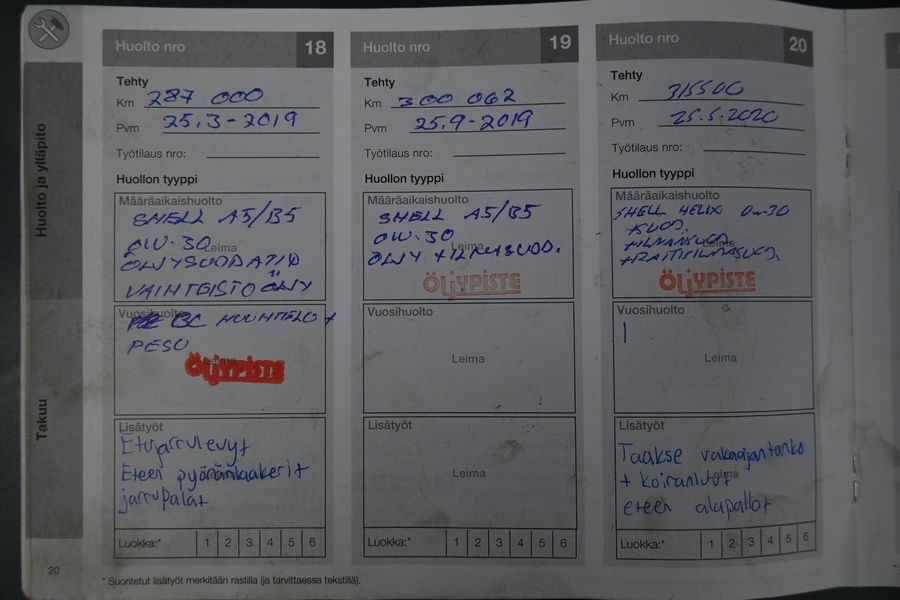 Huolto ja ylläpito
Takuu
Huolto nro 18
Tehty
Km 287 000
Pvm 25.3-2019
Työtilaus nro:
Huollon tyyppi
Määräaikaishuolto
SHELL A5/B5
0W-30
Leima
ÖLJYSUODATIN
VAIHTEISTOÖLJY
Vuosihuolto
BC HUUHTELU +
PESU
Leima
ÖLJYPISTE
Lisätyöt
Etujarrulevyt
Eteen pyöränlaakerit
Leima
jarrupalat
Luokka:* 1 2 3 4 5 6
Huolto nro 19
Tehty
Km 300 062
Pvm 25.9-2019
Työtilaus nro:
Huollon tyyppi
Määräaikaishuolto
SHELL A5/B5
0W-30
Leima
ÖLJY + ILMASUOD.
ÖLJYPISTE
Vuosihuolto
Leima
Lisätyöt
Leima
Luokka:* 1 2 3 4 5 6
Huolto nro 20
Tehty
Km 315500
Pvm 25.5.2020
Työtilaus nro:
Huollon tyyppi
Määräaikaishuolto
SHELL HELIX 0W-30
+SUOD.
+ILMANSUOD.
Leima
+RAITISILMASUOD.
ÖLJYPISTE
Vuosihuolto
Leima
Lisätyöt
Taakse vakaajantanko
+ koiranluut
Leima
eteen alapallot
Luokka:* 1 2 3 4 5 6
20
* Suoritetut lisätyöt merkitään rastilla (ja tarvittaessa tekstillä).